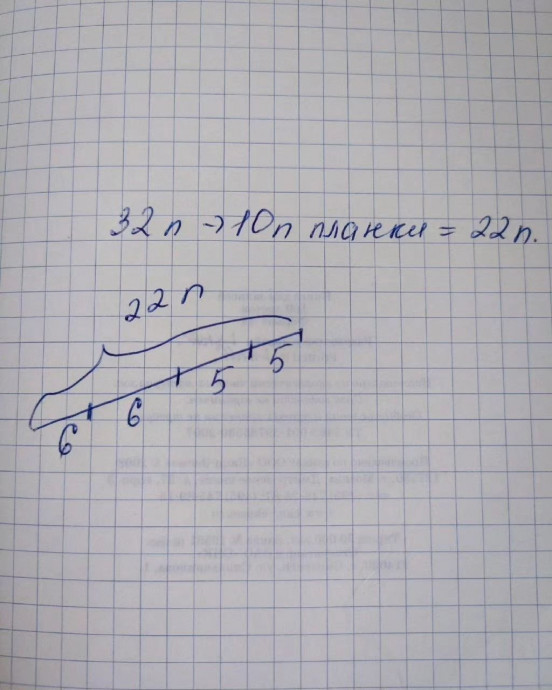 32 п → 10 п планки = 22 п.
22 п
6 6 5 5